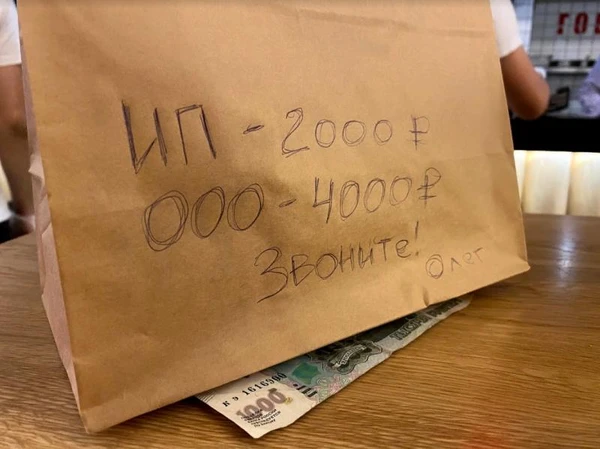 ИП - 2000 ₽
ООО - 4000 ₽
Звоните!
Олег
1616900
1000